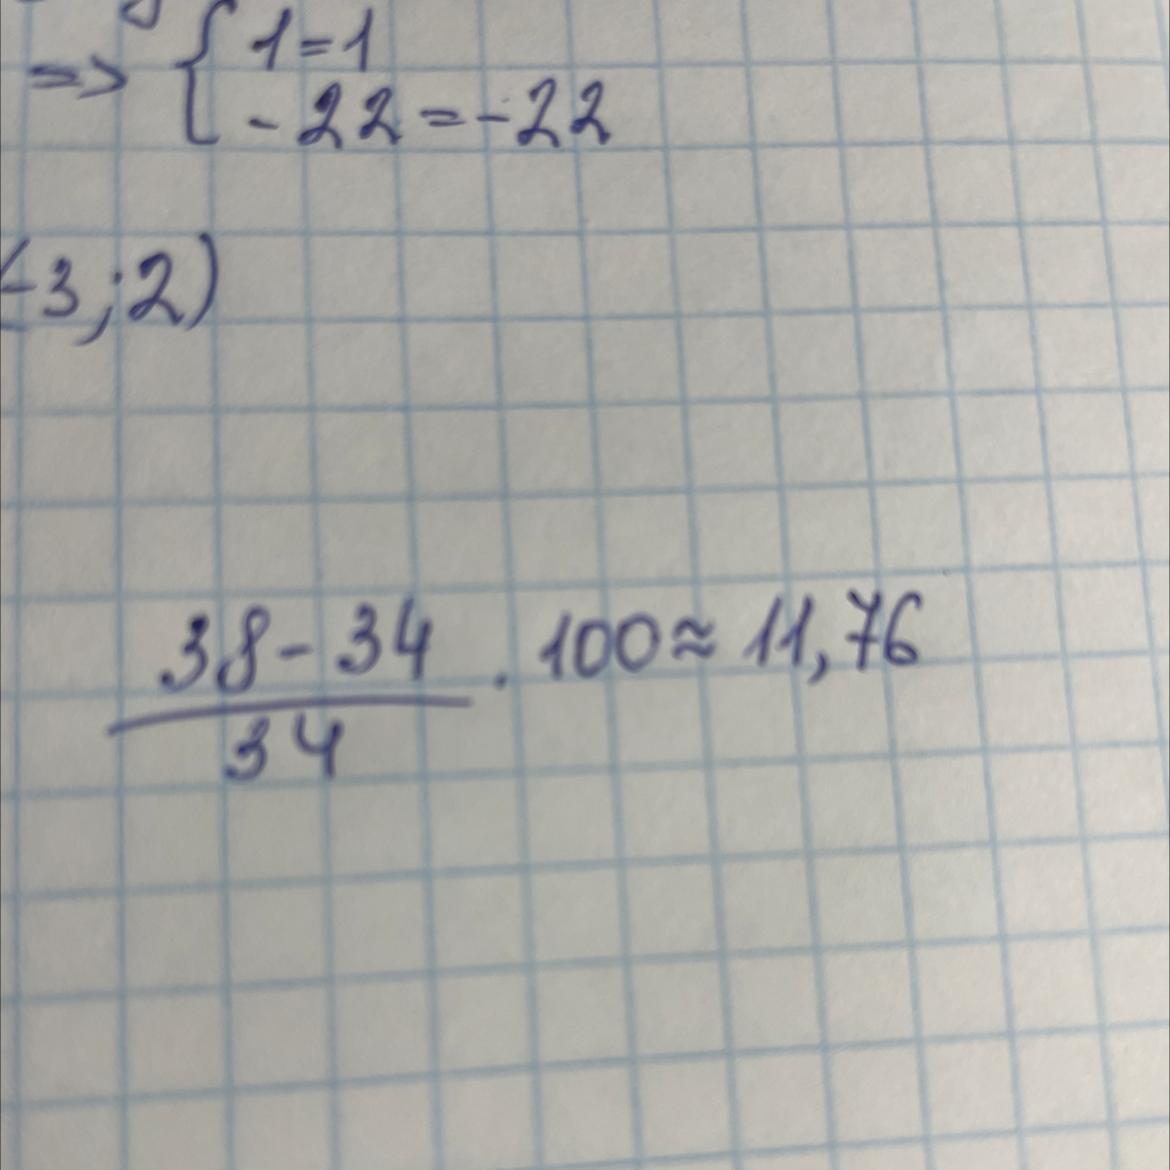 => { 1=1
-22=-22
(-3;2)
38-34
34
. 100≈11,76